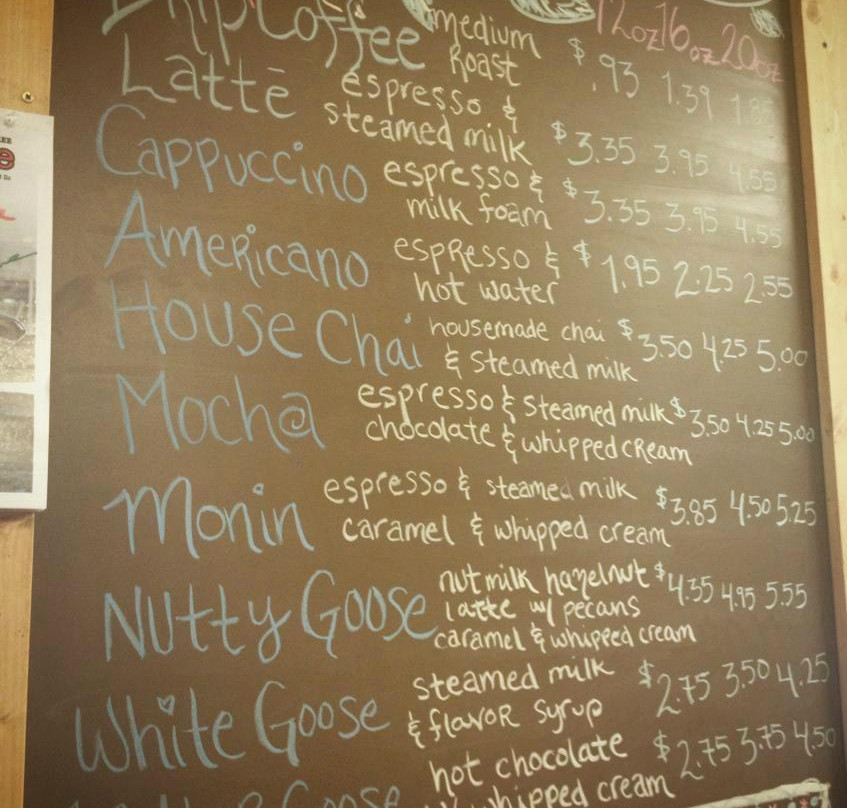 Drip Coffee medium Roast $ .93 1.39 1.85
12oz 16oz 20oz
Lattē espresso & steamed milk $3.35 3.95 4.55
Cappuccino espresso & milk foam $3.35 3.95 4.55
Americano espresso & hot water $1.95 2.25 2.55
House Chai housemade chai & steamed milk $3.50 4.25 5.00
Mocha espresso & steamed milk chocolate & whipped cream $3.50 4.25 5.00
Monin espresso & steamed milk caramel & whipped cream $3.85 4.50 5.25
Nutty Goose nut milk hazelnut latte w/ pecans caramel & whipped cream $4.35 4.95 5.55
White Goose steamed milk & flavor syrup $2.75 3.50 4.25
Goose hot chocolate w/ whipped cream $2.75 3.75 4.50